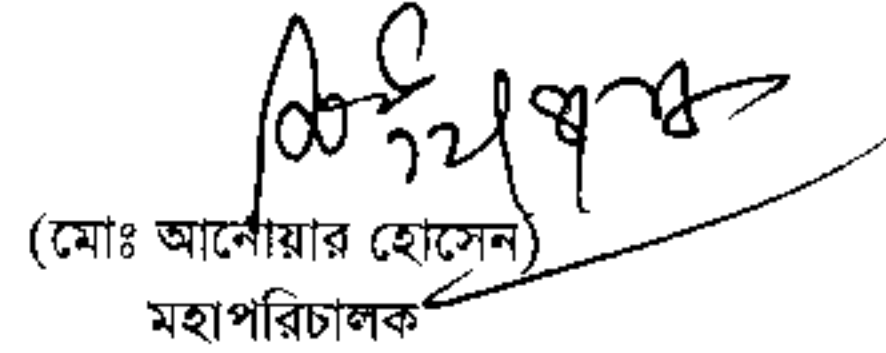 (মোঃ আনোয়ার হোসেন)
মহাপরিচালক